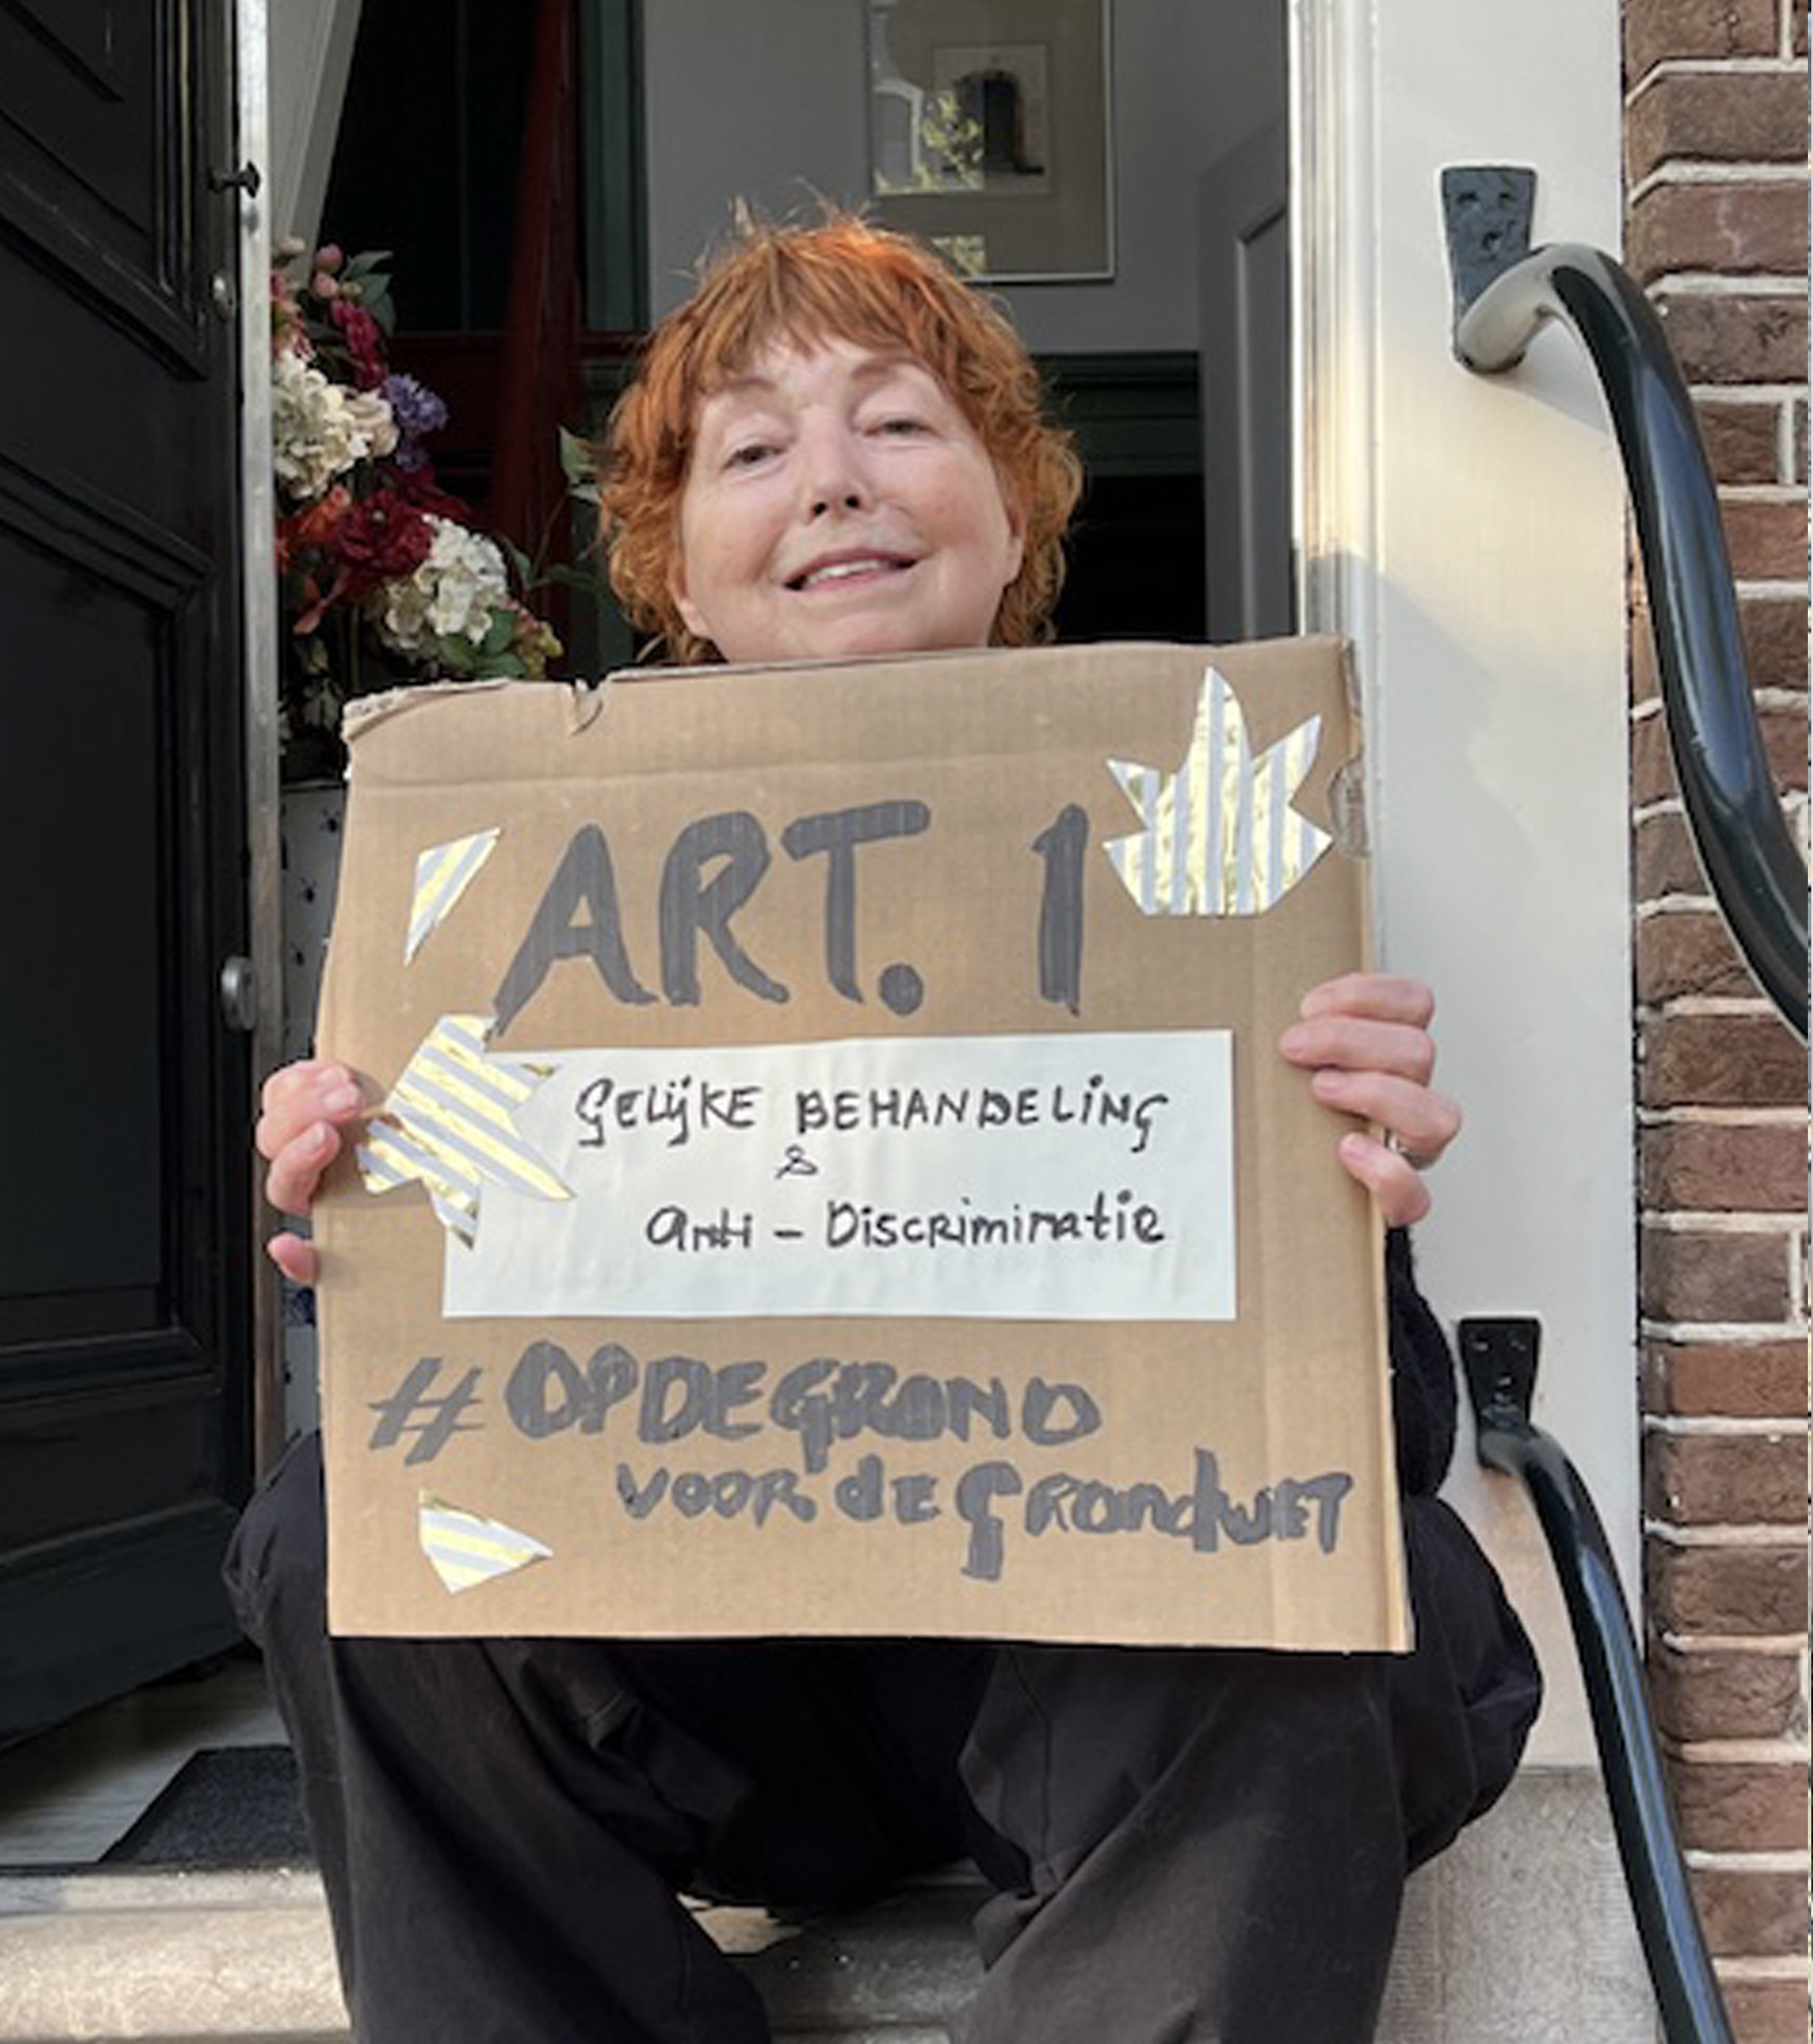 ART. 1
GELIJKE BEHANDELING
&
anti - Discriminatie
#OPDEGROND
VOOR dE GRondWET